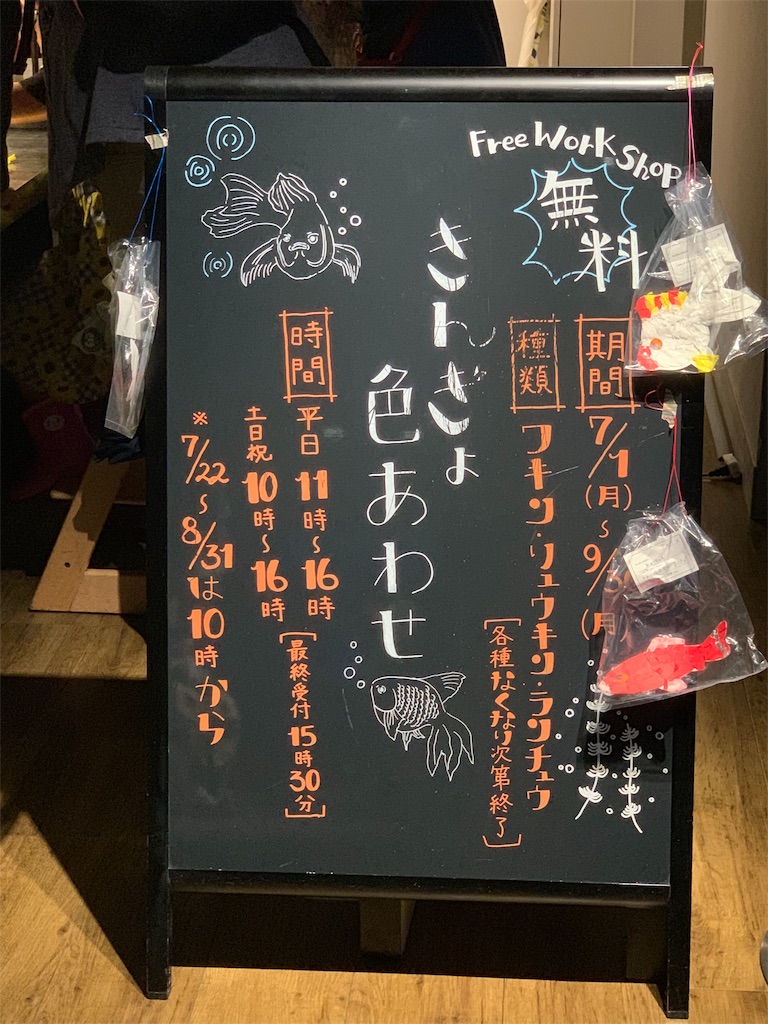 Free Work Shop
無料
期間
7/1(月)～9/
種類
ワキン・リュウキン・ランチュウ
[各種なくなり次第終了]
きんぎょ
色あわせ
時間
平日 11時～16時
[最終受付15時30分]
土日祝 10時～16時
※7/22～8/31は10時から